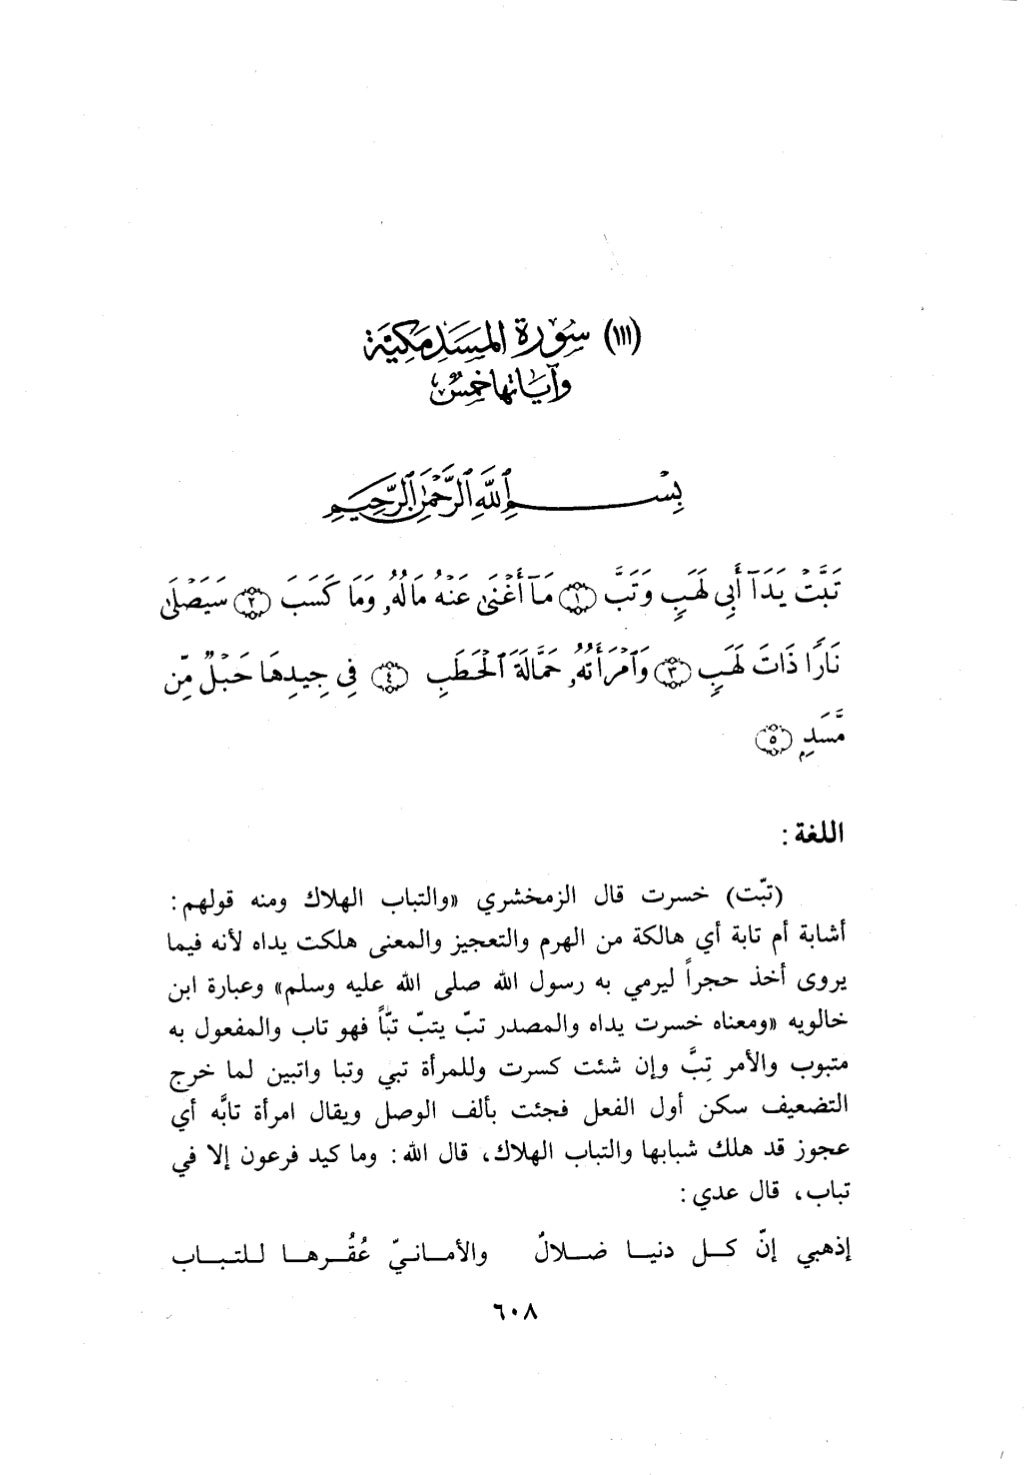 (١١١) سُورَة المَسَدِ مَكِيَّة
وآياتها خمسٌ
بِسْمِ ٱللَّهِ ٱلرَّحْمَٰنِ ٱلرَّحِيمِ
تَبَّتْ يَدَآ أَبِى لَهَبٍ وَتَبَّ ١ مَآ أَغْنَىٰ عَنْهُ مَالُهُۥ وَمَا كَسَبَ ٢ سَيَصْلَىٰ
نَارًا ذَاتَ لَهَبٍ ٣ وَٱمْرَأَتُهُۥ حَمَّالَةَ ٱلْحَطَبِ ٤ فِى جِيدِهَا حَبْلٌ مِّن
مَّسَدٍۭ ٥
اللغة :
(تبّت) خسرت قال الزمخشري «والتباب الهلاك ومنه قولهم :
أشابة أم تابة أي هالكة من الهرم والتعجيز والمعنى هلكت يداه لأنه فيما
يروى أخذ حجراً ليرمي به رسول الله صلى الله عليه وسلم» وعبارة ابن
خالويه «ومعناه خسرت يداه والمصدر تبّ يتبّ تبّاً فهو تاب والمفعول به
متبوب والأمر تِبَّ وإن شئت كسرت وللمرأة تبي وتبا واتبين لما خرج
التضعيف سكن أول الفعل فجئت بألف الوصل ويقال امرأة تابَّه أي
عجوز قد هلك شبابها والتباب الهلاك، قال الله : وما كيد فرعون إلا في
تباب، قال عدي :
إذهبي إنّ كل دنيا ضلالٌ والأمانيّ عُقُرها للتباب
٦٠٨